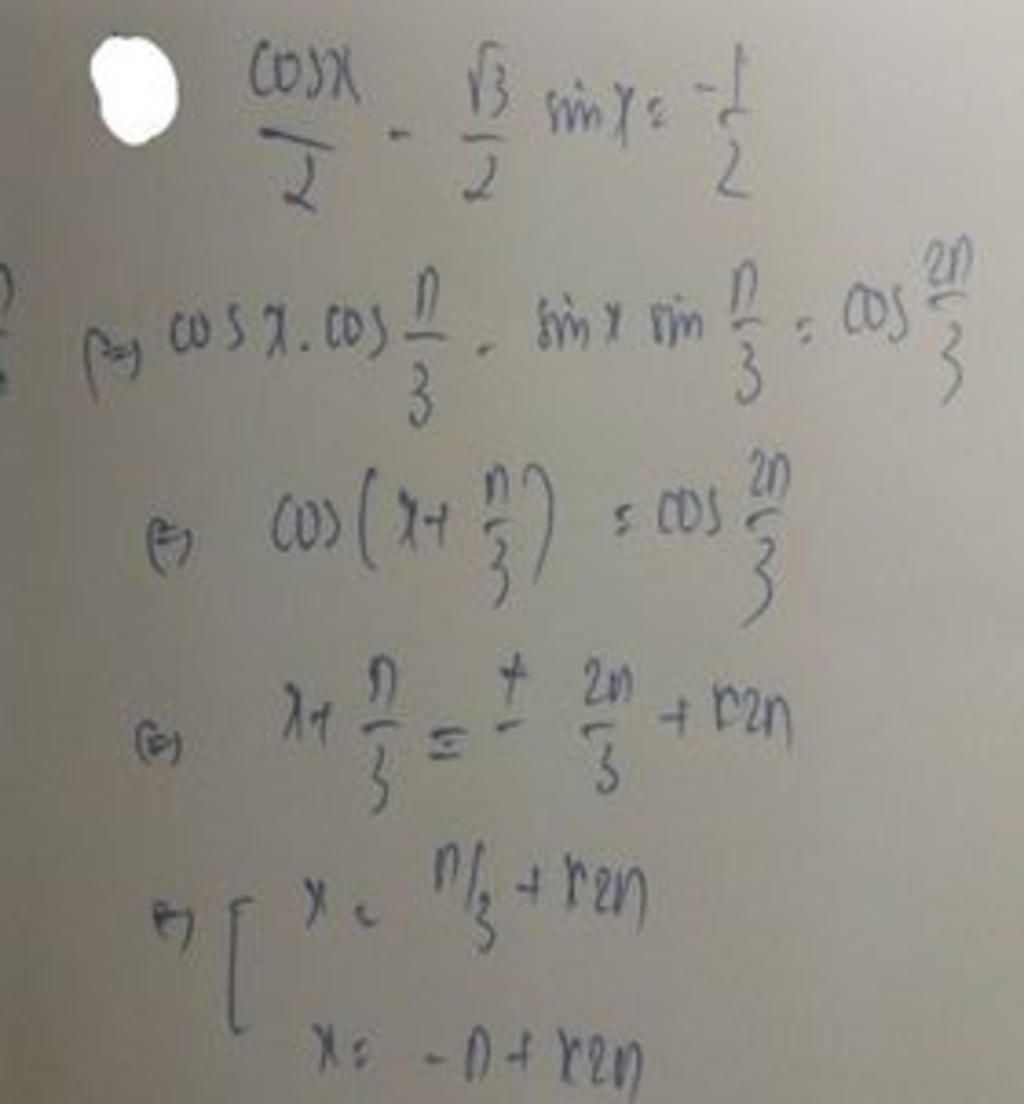 cosx/2 - √3/2 sin x = -1/2
(=) cos x . cos π/3 - sin x sin π/3 = cos 2π/3
(=) cos(x + π/3) = cos 2π/3
(=) x + π/3 = ± 2π/3 + k2π
(=) [ x = π/3 + k2π
x = -π + k2π